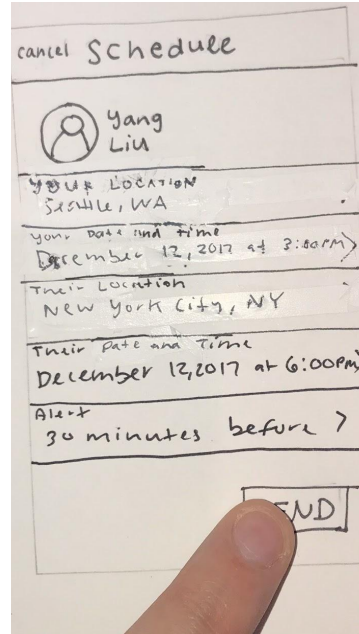 cancel Schedule
Yang
Liu
YOUR LOCATION
Seattle, WA
your Date and time
December 12, 2017 at 3:00PM >
Their Location
New York City, NY
Their Date and Time
December 12, 2017 at 6:00PM
Alert
30 minutes before >
END